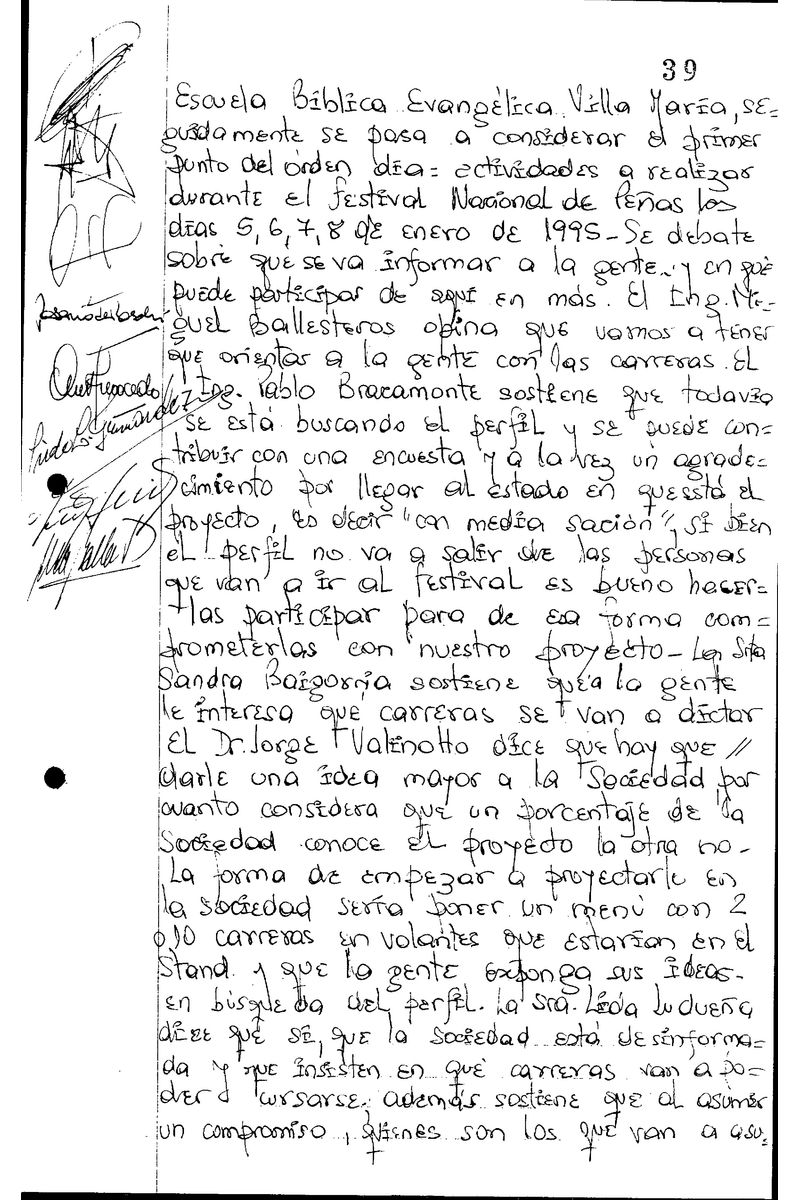 39
Escuela Bíblica Evangélica Villa María, se=
guidamente se pasa a considerar el primer
punto del órden día= actividades a realizar
durante el festival Nacional de Peñas los
días 5, 6, 7, 8 de enero de 1995_ Se debate
sobre que se va informar a la gente y en qué
puede participar de aquí en más. El Ing. Mi=
guel Ballesteros opina que vamos a tener
que orientar a la gente con las carreras. El
Ing. Pablo Bracamonte sostiene que todavía
se está buscando el perfil y se puede con=
tribuir con una encuesta y a la vez un agrade=
cimiento por llegar al estado en que está el
proyecto, es decir "con media sación", si bien
el perfil no va a salir de las personas
que van a ir al festival es bueno hacer=
las participar para de esa forma com=
prometerlas con nuestro proyecto_ La Srta
Sandra Baigorria sostiene que a la gente
le interesa que carreras se van a dictar
El Dr. Jorge Valinotto dice que hay que //
darle una idea mayor a la Sociedad por
cuanto considera que un porcentaje de la
Sociedad conoce el proyecto la otra no_
La forma de empezar a proyectarle en
la sociedad sería poner un menú con 2
o 10 carreras en volantes que estarían en el
Stand y que la gente exponga sus ideas_
en búsqueda del perfil. La Sra. Lida Ludueña
dice que sí, que la sociedad está desinforma=
da y que insisten en qué carreras van a po=
der cursarse, además sostiene que al asumir
un compromiso, quienes son los que van a asu=